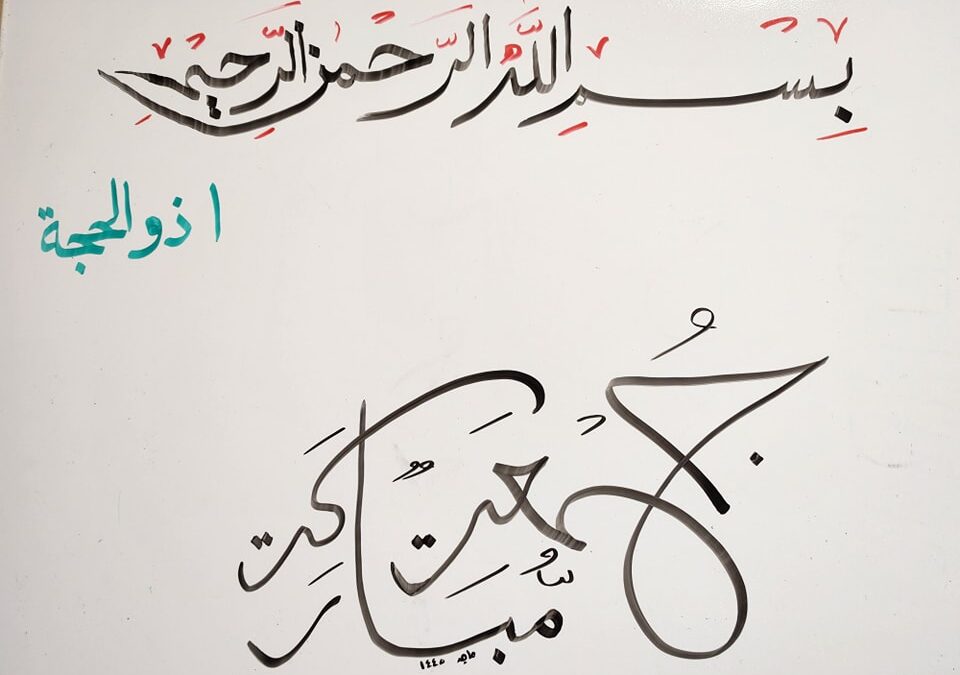 بِسْمِ اللَّهِ الرَّحْمٰنِ الرَّحِيمِ
١ ذو الحجة
جُمعَةٌ
مُّبَارَكَة
ماجد ١٤٤٥